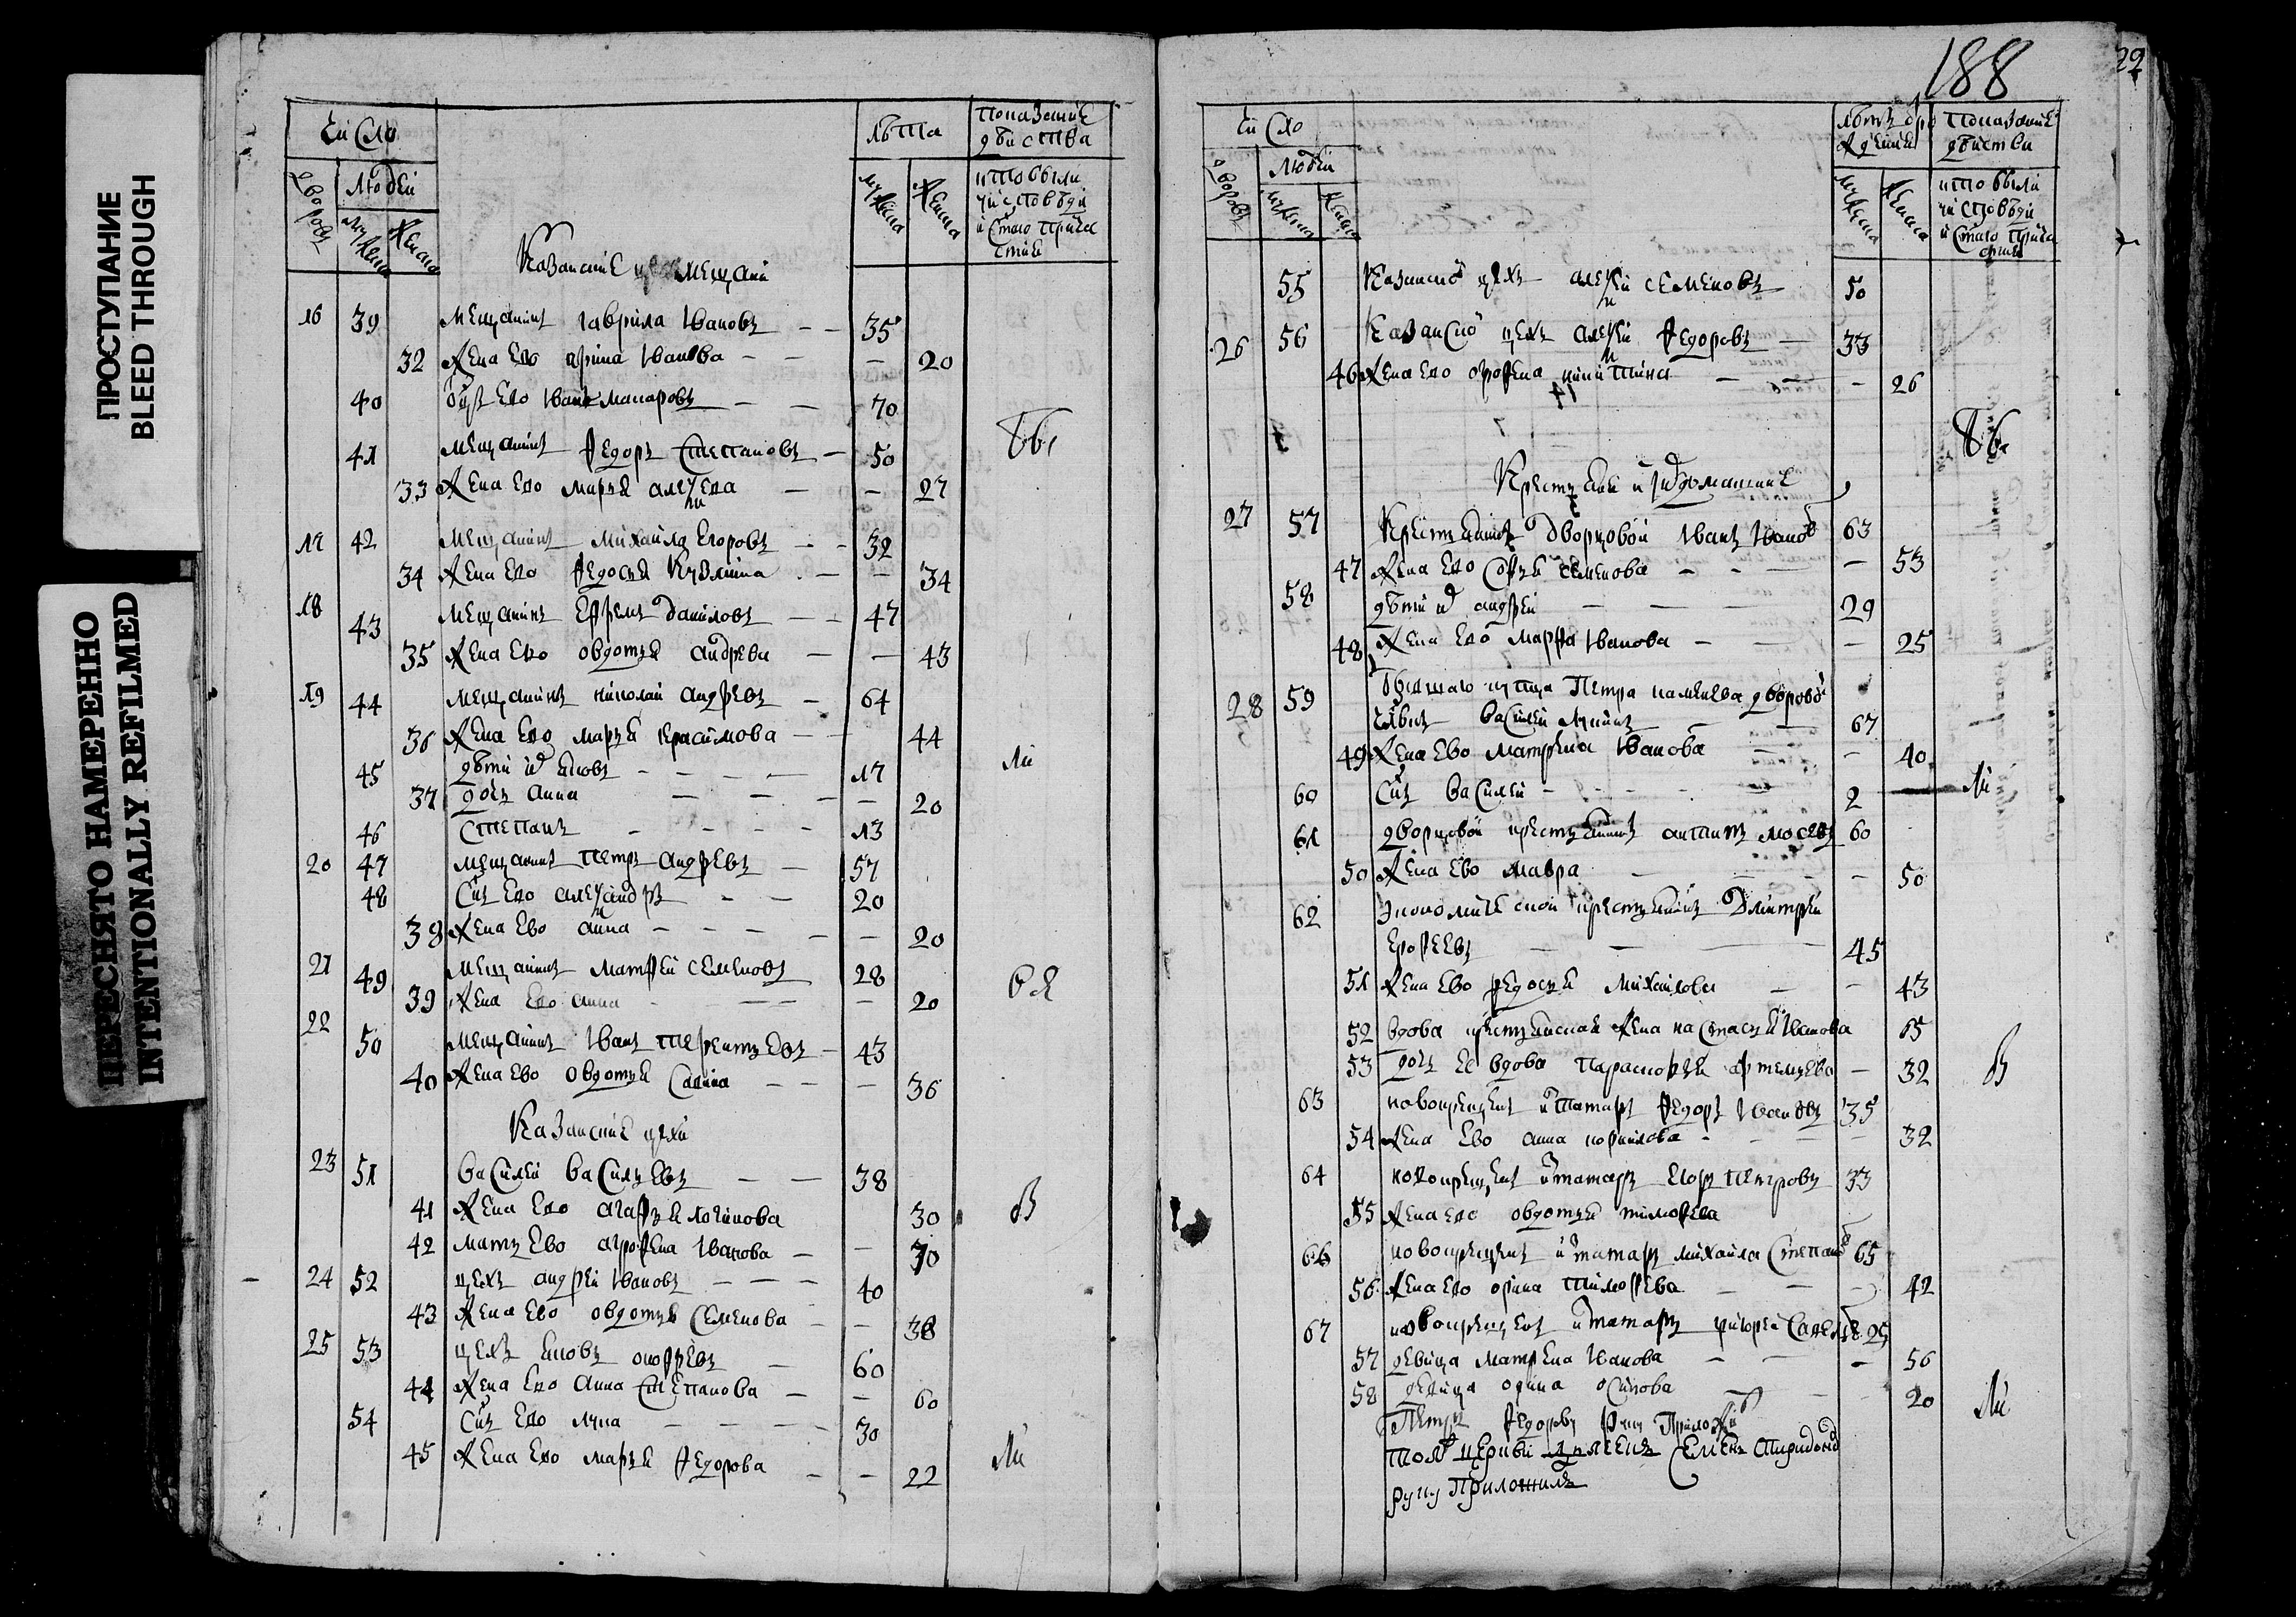 ПРОСТУПАНИЕ
BLEED THROUGH
ПЕРЕСНЯТО НАМЕРЕННО
INTENTIONALLY REFILMED
число
лѣта
показание
дѣйства
дворовъ
людей
мужеска
женска
мужеска
женска
кто были
у исповѣди
и стаго прича
стия
Казанские мещани
16 39 Мещанинъ гаврила Ивановъ 35
32 Жена ево ирина Иванова 20
40 оцъ ево Иванъ макаровъ 70
41 мещанинъ Федоръ Степановъ 50
33 Жена ево марья алеѯева 27
17 42 Мещанинъ михайла Егоровъ 32
34 Жена ево Федосья Кузмина 34
18 43 Мещанинъ Ефремъ Даниловъ 47
35 Жена ево овдотья андреева 43
19 44 мещанинъ николай андревъ 64
36 Жена ево марья герасимова 44
45 дѣти ихъ яковъ 17
37 дочь анна 20
46 Степанъ 13
20 47 мещанинъ Петръ андревъ 57
48 Снъ ево алеѯандръ 20
38 Жена ево анна 20
21 49 Мещанинъ матфей семеновъ 28
39 Жена ево анна 20
22 50 Мещанинъ Иванъ терентьевъ 43
40 Жена ево овдотья Савина 36
Казанские цехи
23 51 василей васильевъ 38
41 Жена ево агафья логинова 30
42 мать ево агрофена Иванова 70
24 52 цехъ андрей Ивановъ 40
43 Жена ево овдотья семенова 38
25 53 цехъ яковъ онофревъ 60
44 Жена ево анна степанова 60
54 Снъ ево лука 30
45 Жена ево марья Федорова 22
188
22
число
показание
дѣйства
дворовъ
людей
мужеска
женска
мужеска
женска
кто были
у исповѣди
и стаго прича
стия
55 Казанской цехъ алеѯей семеновъ 50
26 56 Казанской цехъ алеѯей Федоровъ 33
46 Жена ево огрофена никитина 26
Крестьяне и их домашние
27 57 Крестьянинъ дворцовой Иванъ Ивановъ 63
47 Жена ево софья семенова 53
58 дѣти их андрей 29
48 Жена ево марфа Иванова 25
28 59 бывшаго купца Петра каменева дворовой
члвкъ василей лукинъ 67
49 Жена ево матрена Иванова 40
60 Снъ василей 2
61 дворцовой крестьянинъ антипъ мосевъ 60
50 Жена ево мавра 50
62 экономической крестьянинъ Дмитрей
ерофеевъ 45
51 Жена ево федосья михайлова 43
52 вдова крестьянская жена настасья Иванова 65
53 дочь ее вдова парасковья артемьева 32
63 новокрещенъ из татаръ Федоръ Ивановъ 35
54 Жена ево анна корнилова 32
64 новокрещенъ из татаръ Егоръ Петровъ 33
55 Жена ево овдотья тимофева
66 новокрещенъ из татаръ михайла Степановъ 65
56 Жена ево орина тимофева 42
67 новокрещенъ из татаръ григорей 25
57 девица матрена Иванова 56
58 девица орина осипова 20
Петръ Федоровъ руку Приложилъ
той церкви Семенъ Спиридоновъ
руку Приложилъ